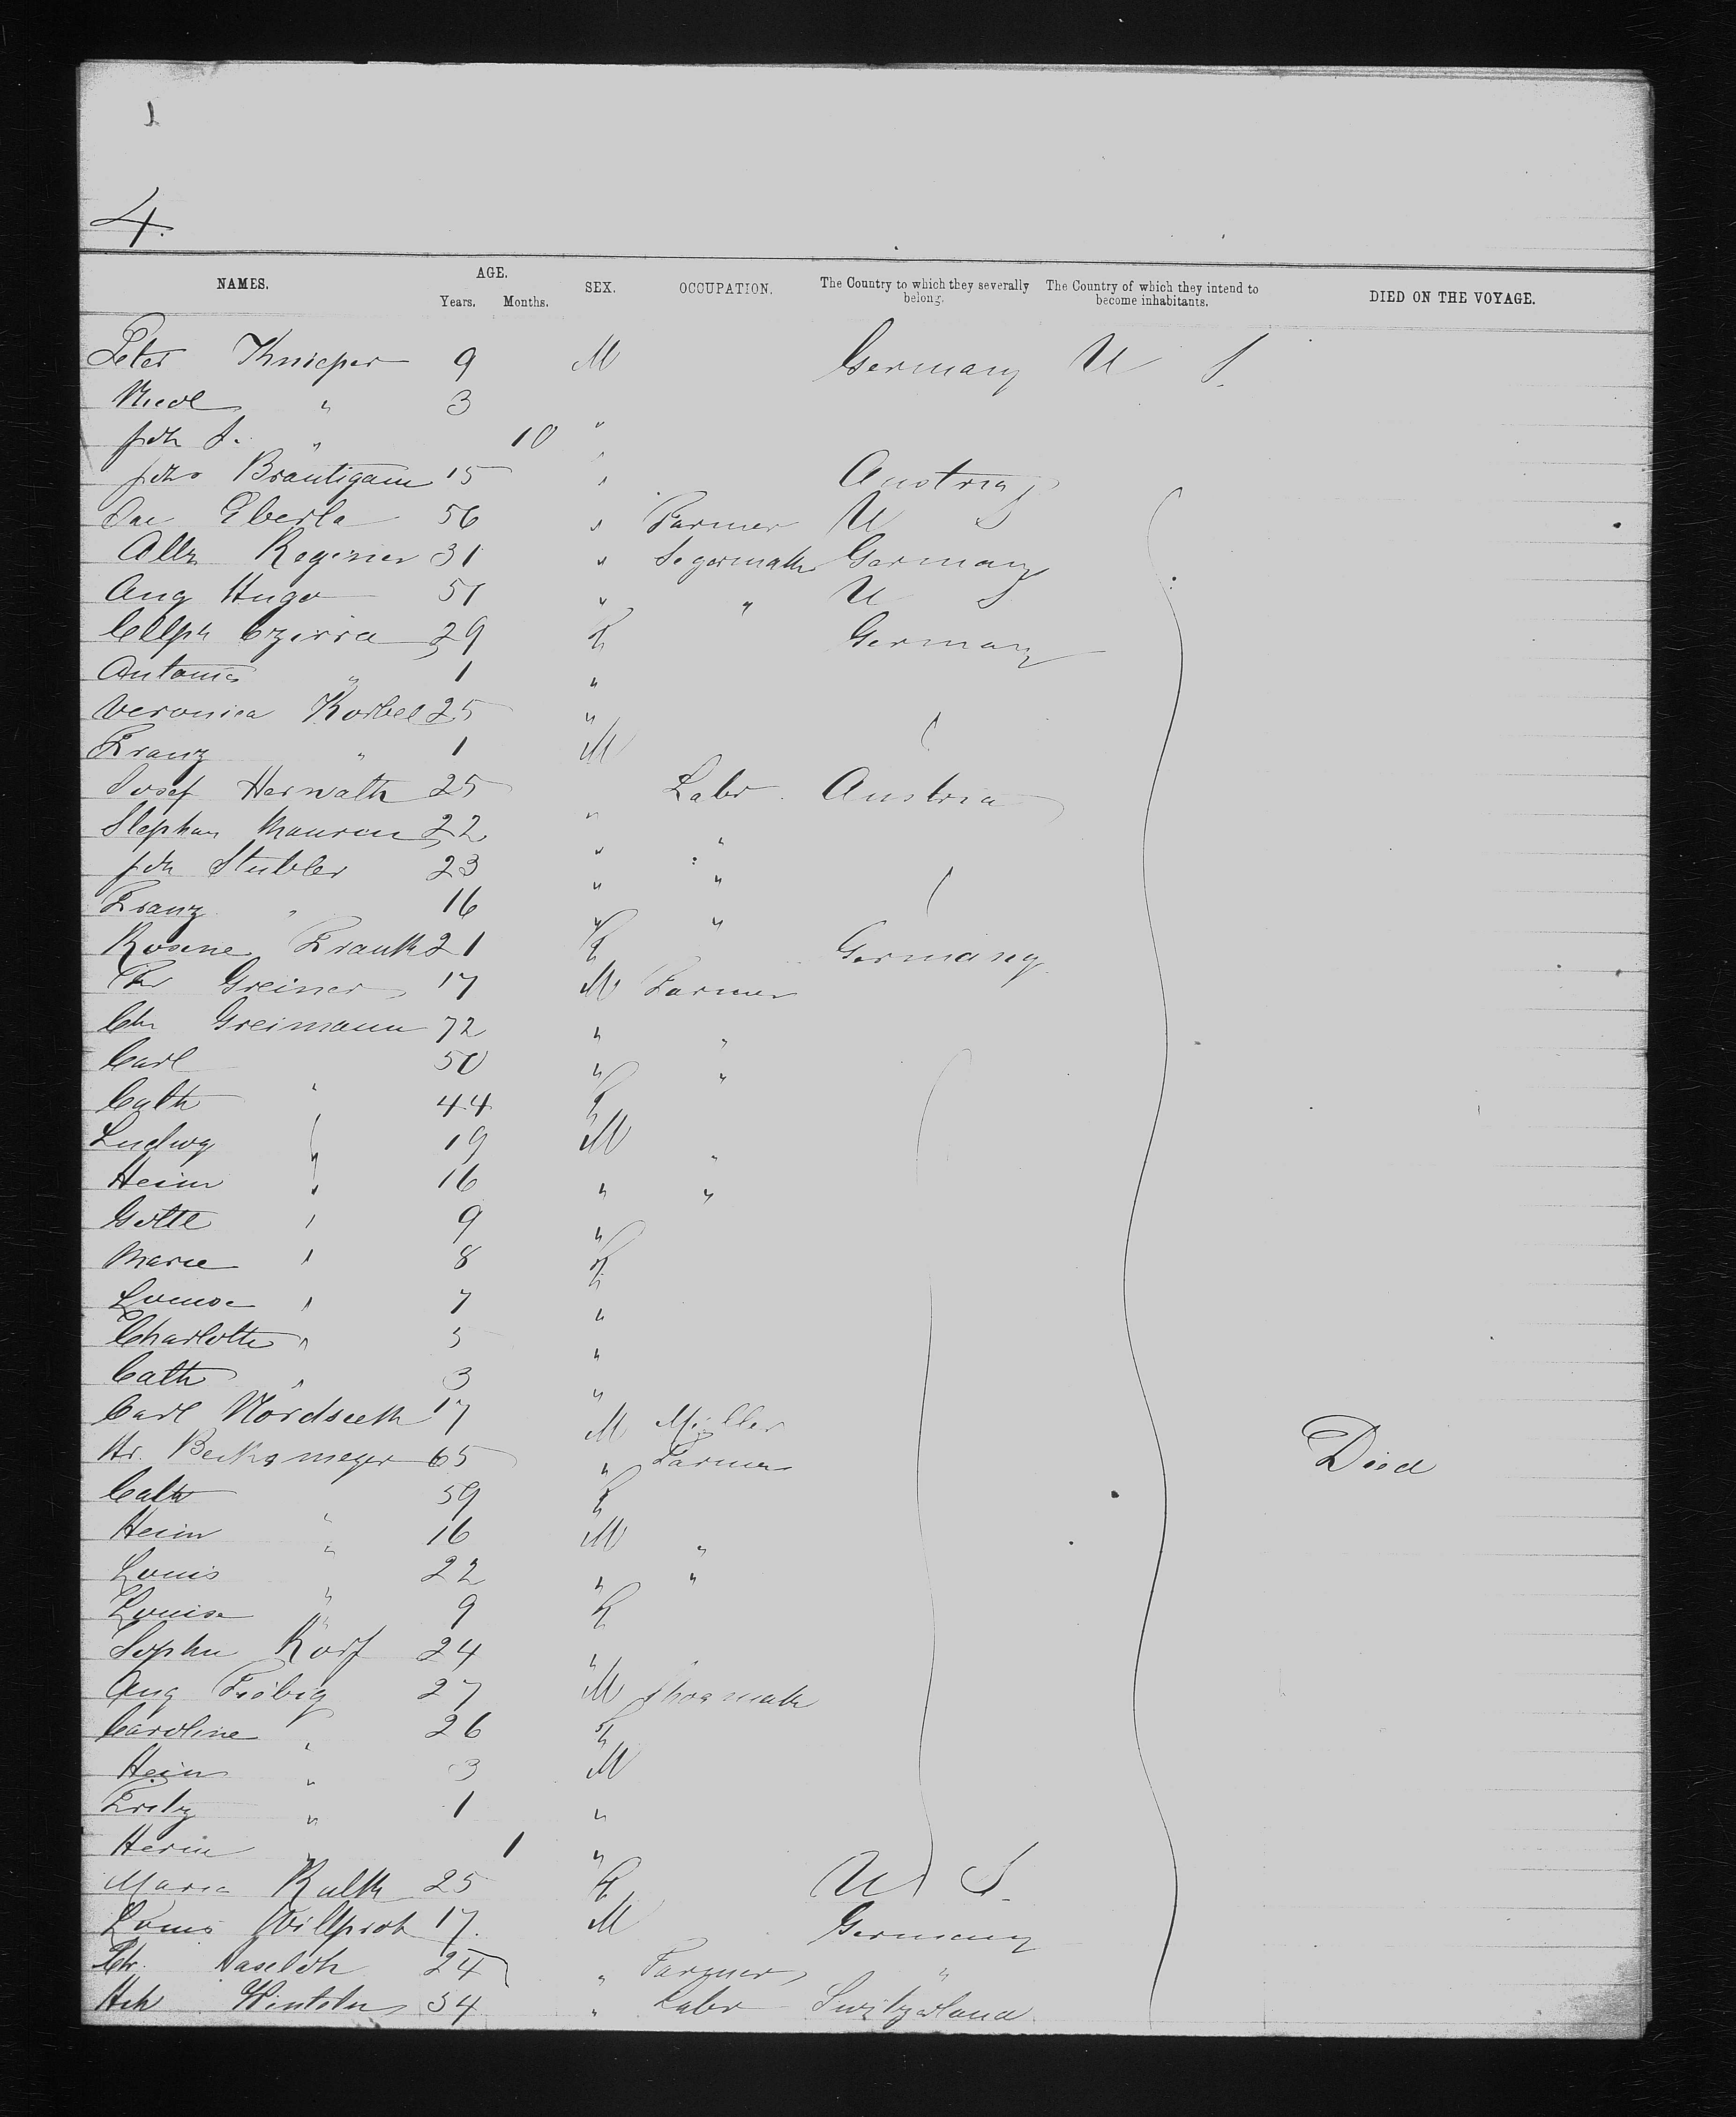 1
4.
NAMES. AGE. Years. Months. SEX. OCCUPATION. The Country to which they severally belong. The Country of which they intend to become inhabitants. DIED ON THE VOYAGE.
Peter Knieper 9 M Germany U S.
" 3
Joh " 10 "
Joh Brautigam 15 " Austria
Eberla 56 " Farmer U S
Regener 31 " Segarmak Germany
Aug Hugo 51 " " U S
29 F Germany
Antonia " 1 "
Veronica Korbel 25 "
Franz " 1 M
Josef Horwath 25 " Labr. Austria
Stephan 22 " "
Joh Stubler 23 " "
Franz " 16 " "
Rosine Frank 21 F Germany
Greiner 17 M Farmer
Chr Greimann 72 " "
Carl 50 " "
Cath " 44 F
Ludwg " 19 M "
Heinr " 16 " "
" 9 "
Marie " 8 F
Louise " 7 "
Charlotte " 5 "
Cath " 3 "
Carl Nordsieth 17 M Müller
Hr. Beckemeyer 65 " Farmer Died
Cath 59 F
Heinr " 16 M "
Louis " 22 " "
Louise " 9 F
Sophie Korf 24 "
Aug Fiebig 27 M Shoemak
Caroline " 26 F
Hein " 3 M
Fritz " 1 "
Herm " 1 "
Maria 25 F U S.
Louis 17. M Germany
Chr. 24 " Farmer "
34 " Labr Switzerland